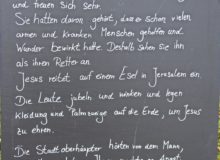 und freuen sich sehr.
Sie hatten davon gehört, dass er schon vielen
armen und kranken Menschen geholfen und
Wunder bewirkt hatte. Deshalb sahen sie ihn
als ihren Retter an.
Jesus reitet auf einem Esel in Jerusalem ein.
Die Leute jubeln und winken und legen
Kleidung und Palmzweige auf die Erde, um Jesus
zu ehren.
Die Stadtoberhäupter hörten von dem Mann,